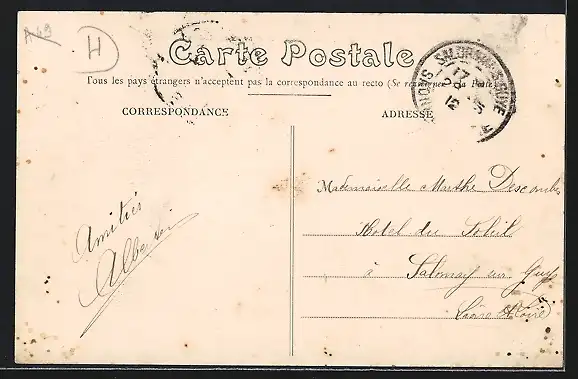 A 69
H
Carte Postale
Tous les pays étrangers n'acceptent pas la correspondance au recto (Se renseigner à la Poste
CORRESPONDANCE
ADRESSE
Amitiés
Mademoiselle Marthe Descombes
Hotel du Soleil
à Salornay sur Guye
Saône & Loire
SALORNAY-S-GUYE
12